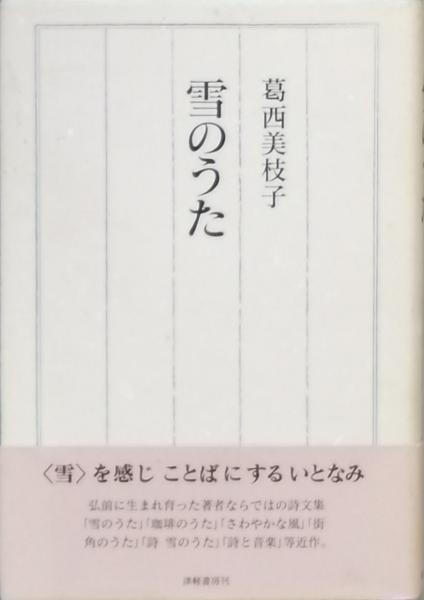 葛西美枝子
雪のうた
〈雪〉を感じ ことばに する いとなみ
弘前に生まれ育った著者ならではの詩文集
「雪のうた」「珈琲のうた」「さわやかな風」「街
角のうた」「詩 雪のうた」「詩と音楽」等近作。
津軽書房刊